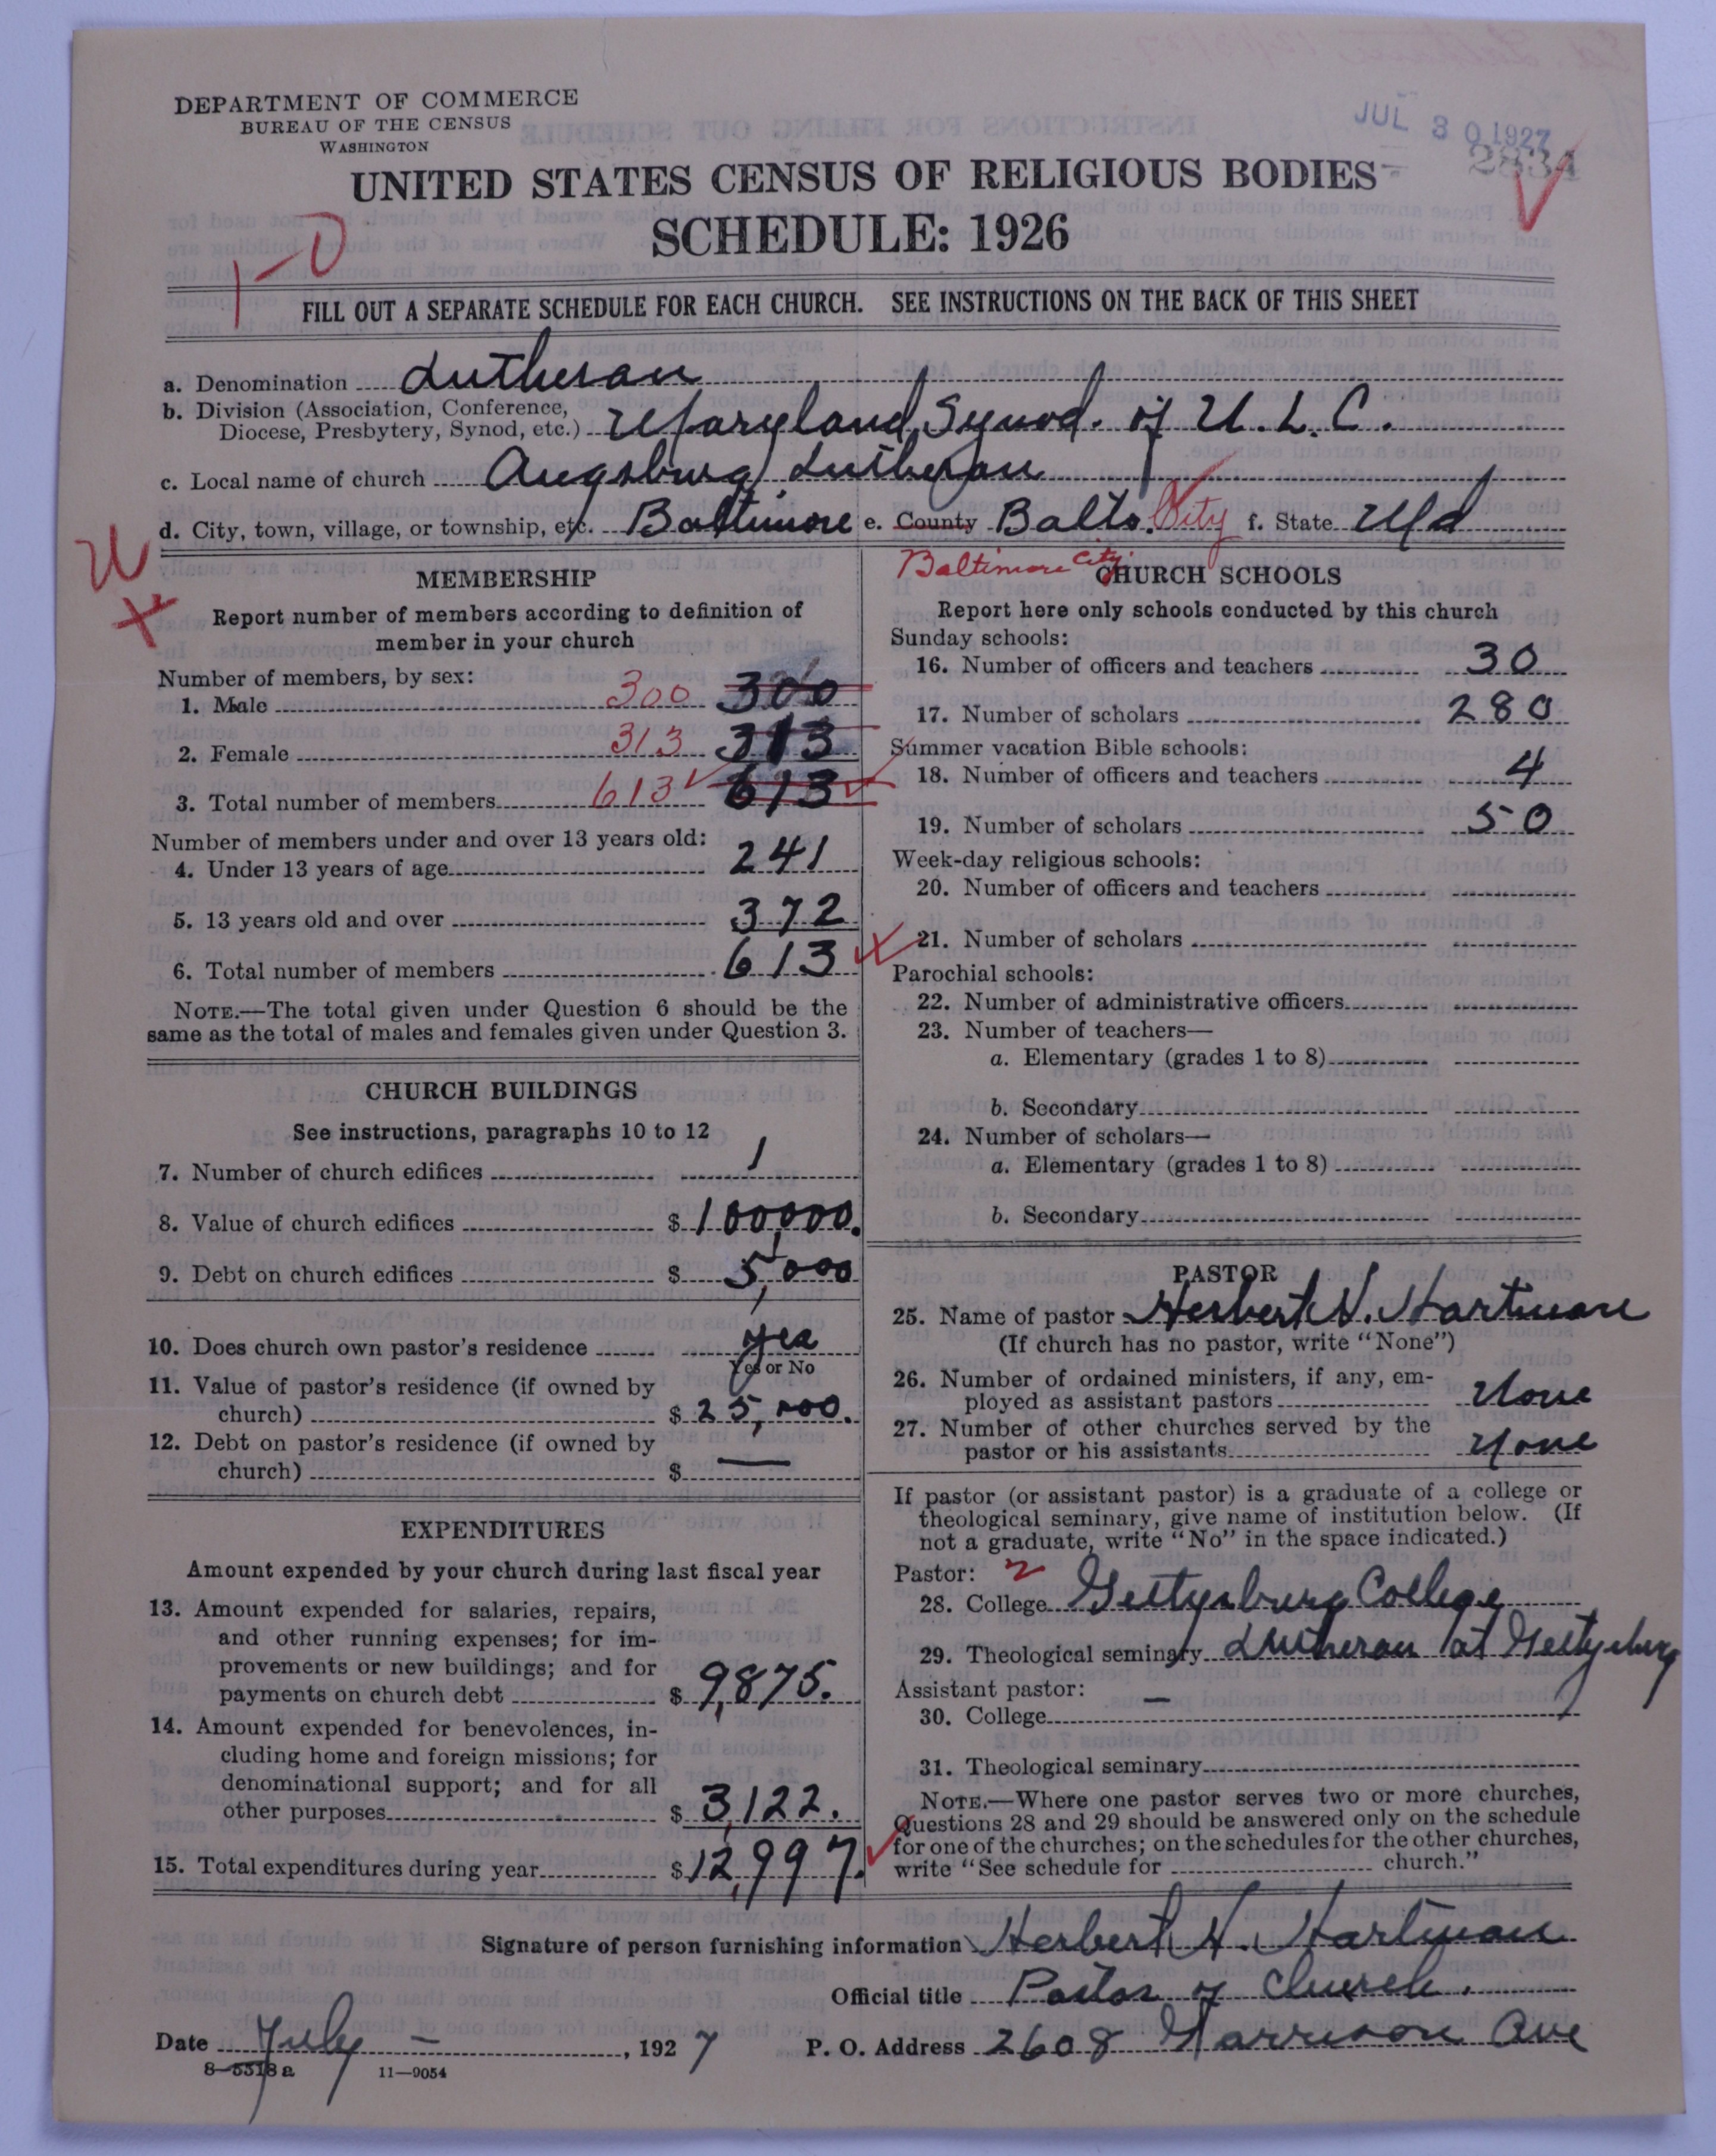 DEPARTMENT OF COMMERCE
BUREAU OF THE CENSUS
WASHINGTON
JUL 30 1927
2834
UNITED STATES CENSUS OF RELIGIOUS BODIES
SCHEDULE: 1926
1-0
FILL OUT A SEPARATE SCHEDULE FOR EACH CHURCH. SEE INSTRUCTIONS ON THE BACK OF THIS SHEET
a. Denomination Lutheran
b. Division (Association, Conference, Diocese, Presbytery, Synod, etc.) Maryland Synod. of U.L.C.
c. Local name of church Augsburg Lutheran
d. City, town, village, or township, etc. Baltimore e. County Balto. City f. State Md
Baltimore City
MEMBERSHIP
Report number of members according to definition of
member in your church
Number of members, by sex:
1. Male 300 300
2. Female 313 313
3. Total number of members 613 613
Number of members under and over 13 years old:
4. Under 13 years of age 241
5. 13 years old and over 372
6. Total number of members 613
NOTE.—The total given under Question 6 should be the
same as the total of males and females given under Question 3.
CHURCH BUILDINGS
See instructions, paragraphs 10 to 12
7. Number of church edifices 1
8. Value of church edifices $ 100000.
9. Debt on church edifices $ 5,000
10. Does church own pastor's residence yes
Yes or No
11. Value of pastor's residence (if owned by
church) $ 25,000.
12. Debt on pastor's residence (if owned by
church) $ —
EXPENDITURES
Amount expended by your church during last fiscal year
13. Amount expended for salaries, repairs,
and other running expenses; for im-
provements or new buildings; and for
payments on church debt $ 9,875.
14. Amount expended for benevolences, in-
cluding home and foreign missions; for
denominational support; and for all
other purposes $ 3,122.
15. Total expenditures during year $ 12,997.
CHURCH SCHOOLS
Report here only schools conducted by this church
Sunday schools:
16. Number of officers and teachers 30
17. Number of scholars 280
Summer vacation Bible schools:
18. Number of officers and teachers 4
19. Number of scholars 50
Week-day religious schools:
20. Number of officers and teachers
21. Number of scholars
Parochial schools:
22. Number of administrative officers
23. Number of teachers—
a. Elementary (grades 1 to 8)
b. Secondary
24. Number of scholars—
a. Elementary (grades 1 to 8)
b. Secondary
PASTOR
25. Name of pastor Herbert H. Hartman
(If church has no pastor, write "None")
26. Number of ordained ministers, if any, em-
ployed as assistant pastors None
27. Number of other churches served by the
pastor or his assistants None
If pastor (or assistant pastor) is a graduate of a college or
theological seminary, give name of institution below. (If
not a graduate, write "No" in the space indicated.)
Pastor: 2
28. College Gettysburg College
29. Theological seminary Lutheran at Gettysburg
Assistant pastor:
30. College —
31. Theological seminary
NOTE.—Where one pastor serves two or more churches,
Questions 28 and 29 should be answered only on the schedule
for one of the churches; on the schedules for the other churches,
write "See schedule for church."
Signature of person furnishing information Herbert H. Hartman
Official title Pastor of Church.
Date July — , 1927 P. O. Address 2608 Garrison Ave
8-5518a 11-9054